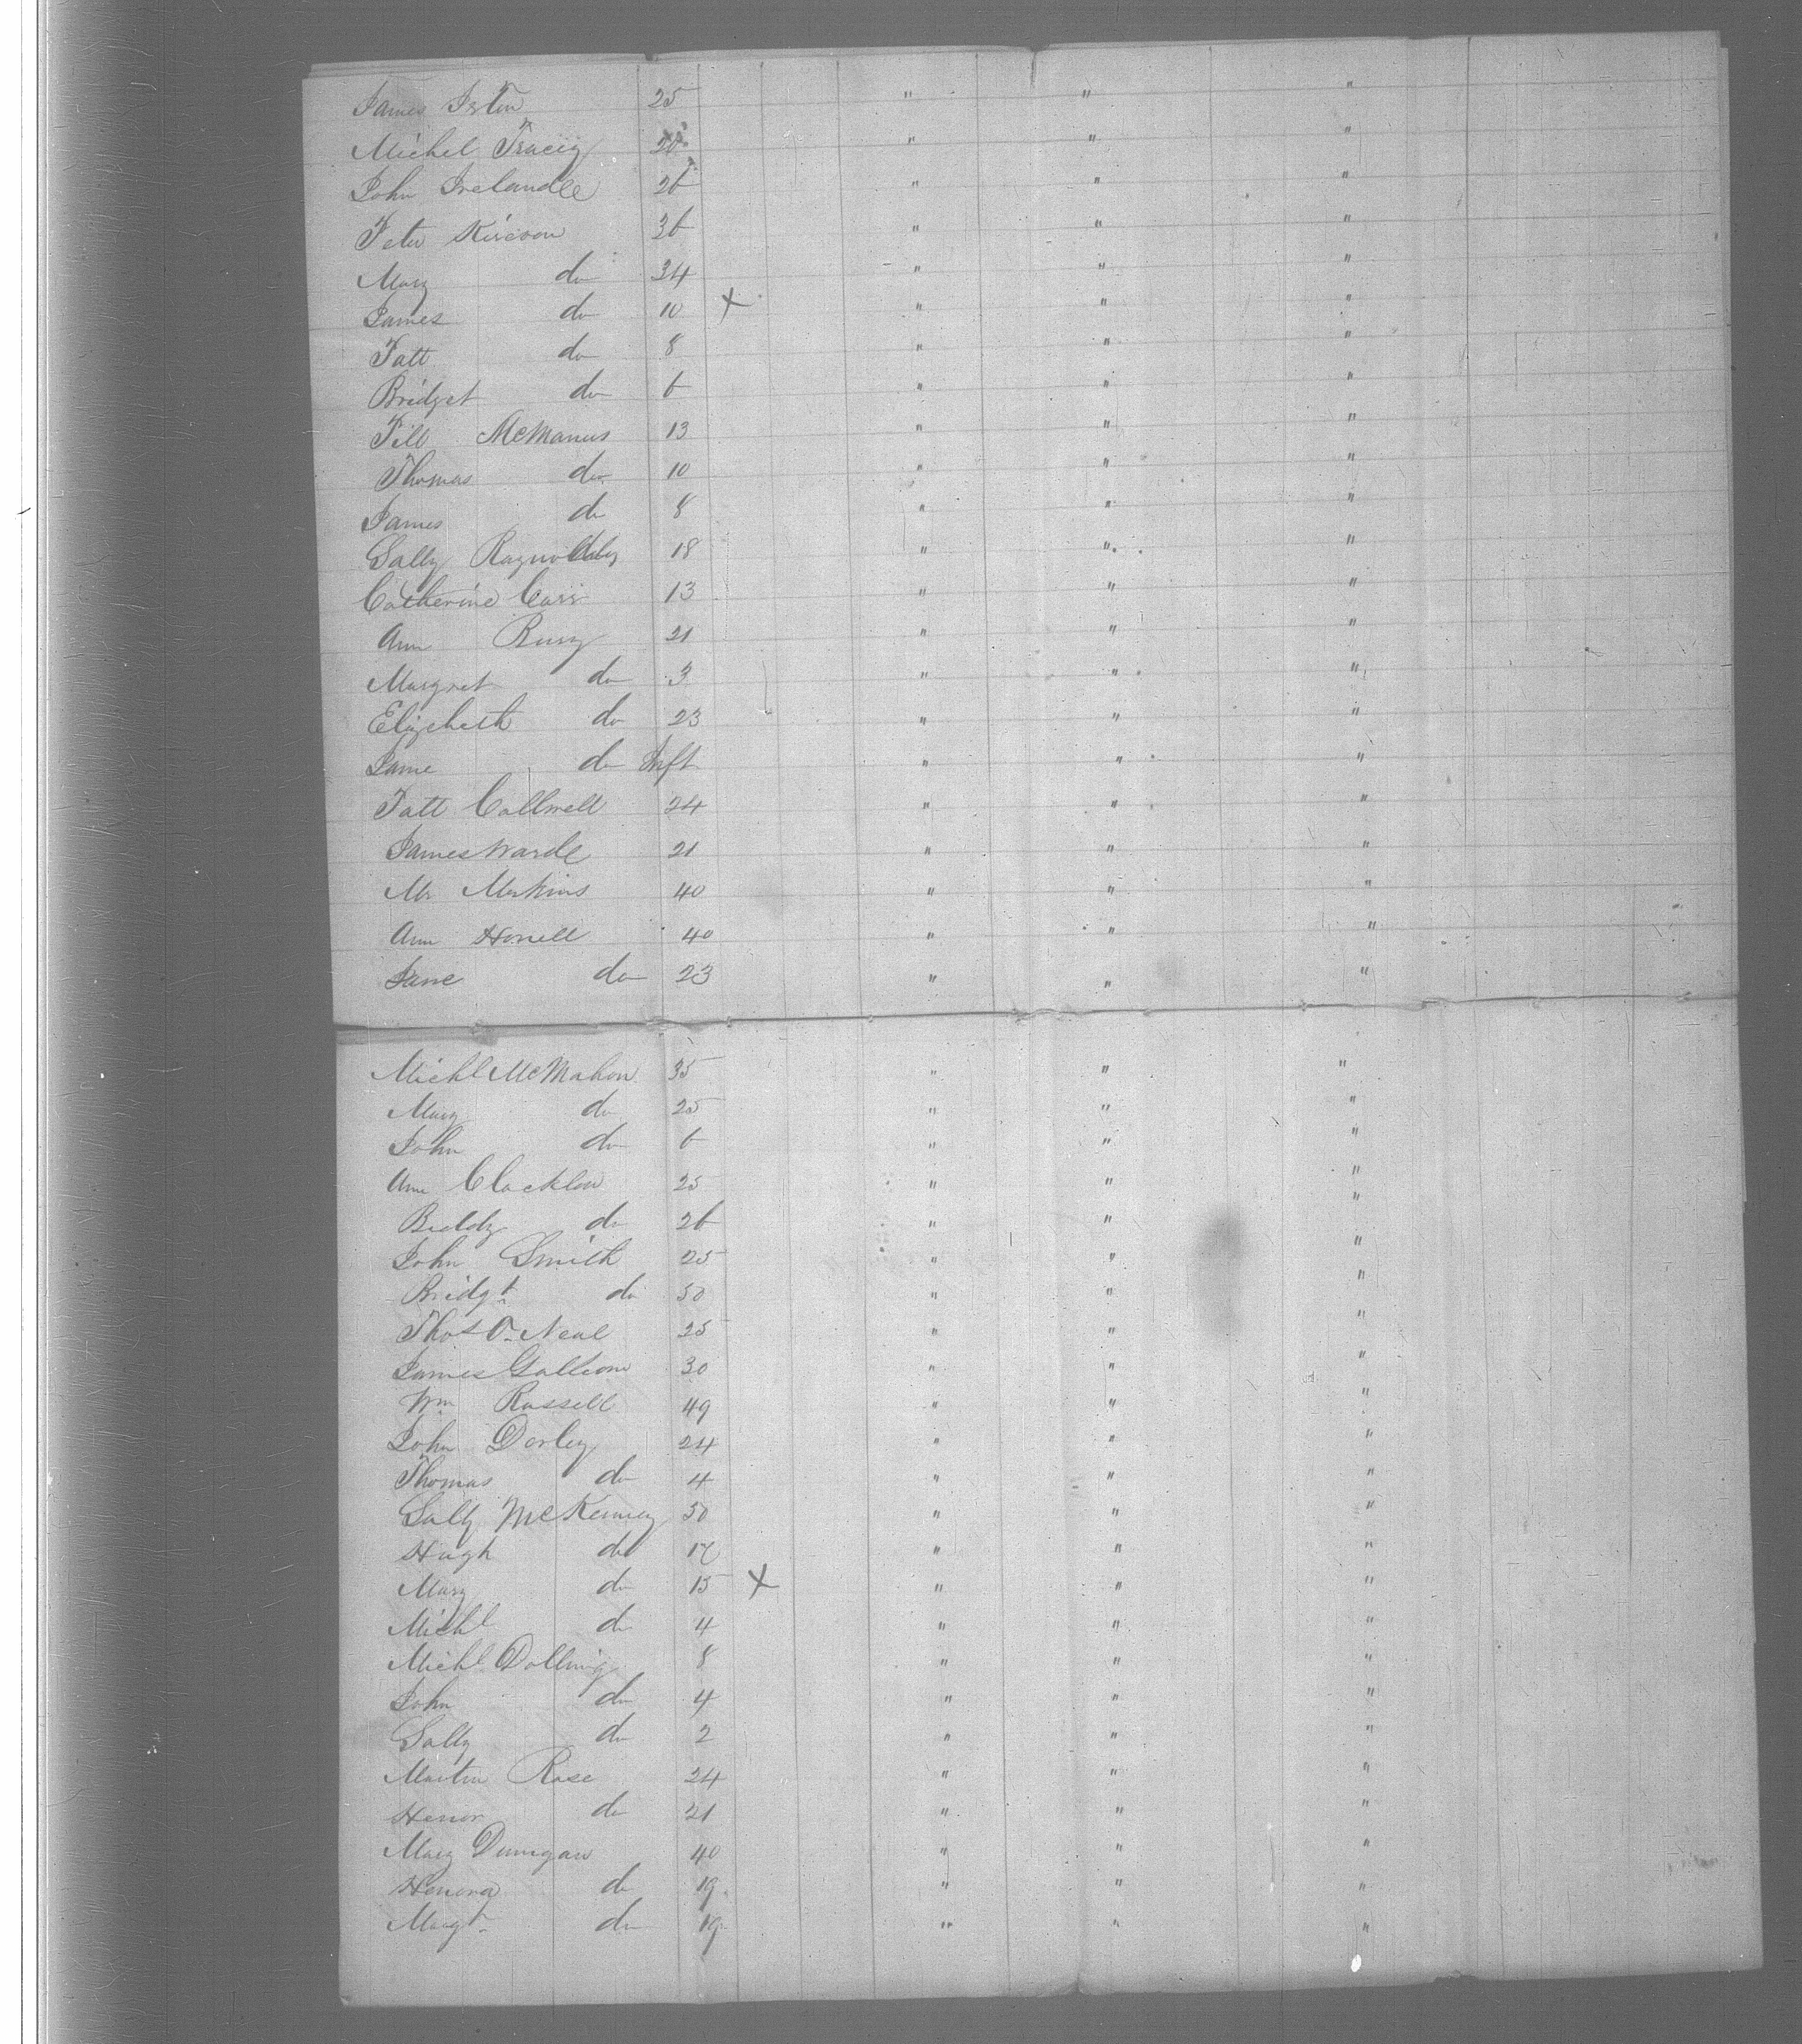 James 25 " " "
Michel Tracey " " "
John Irelande 26 " " "
Peter Kirevon 36 " " "
Mary do 34 " " "
James do 10 × " " "
Patt do 8 " " "
Bridget do 6 " " "
McManus 13 " " "
Thomas do 10 " " "
James do 8 " " "
Sally 18 " " "
Catherine Carr 13 " " "
Ann 21 " " "
Margret do 3 " " "
Elizebeth do 23 " " "
Jame do Inft " " "
Patt Collwell 24 " " "
James Warde 21 " " "
40 " " "
Ann Honell 40 " " "
Jane do 23 " " "
Michl McMahon 35 " " "
Mary do 25 " " "
John do 6 " " "
Ann Clocklow 25 " " "
Biddy do 26 " " "
John Smith 25 " " "
Bridgt do 50 " " "
Thos O. Neal 25 " " "
James Galleon 30 " " "
Wm Russell 49 " " "
John Dorley 24 " " "
Thomas do 4 " " "
Sally McKenney 50 " " "
Hugh do 17 " " "
Mary do 15 × " " "
Michl do 4 " " "
Michl Dolling 8 " " "
John do 4 " " "
Sally do 2 " " "
Martin Rose 24 " " "
Honor do 21 " " "
Mary Dunigan 40 " " "
Honora do 19 " " "
Margt do 19 " " "